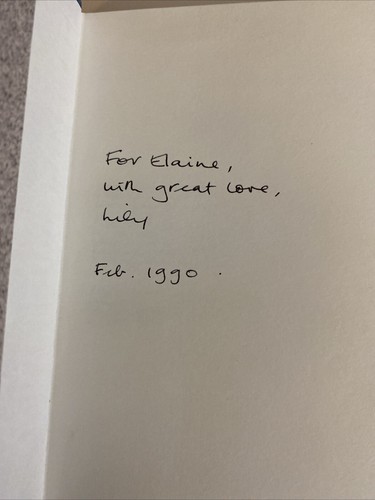 For Elaine,
with great love,
Lily
Feb. 1990.